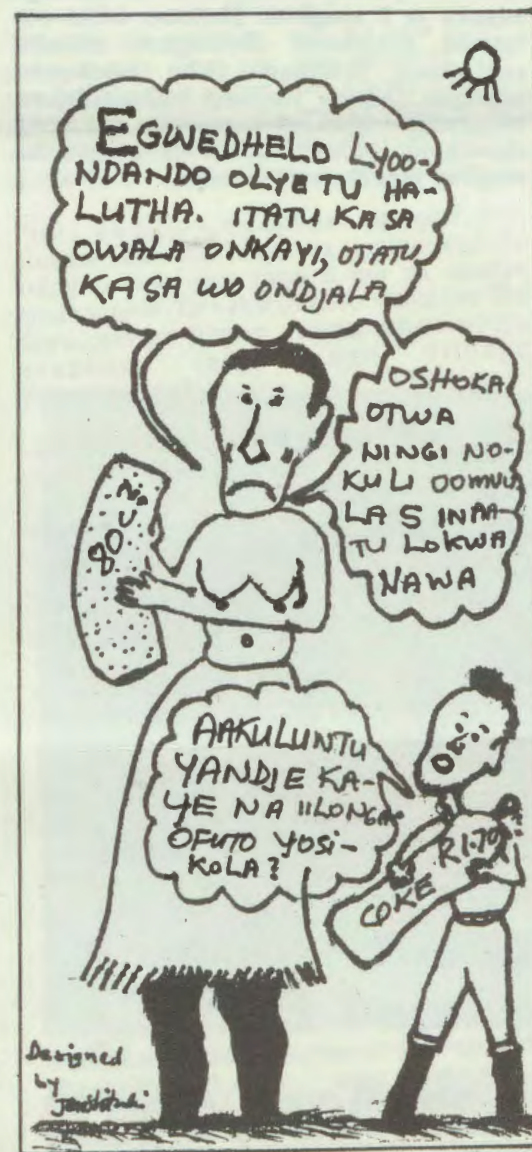 EGWEDHELO LYOO-
NDANDO OLYETU HA-
LUTHA. ITATU KA SA
OWALA ONKAYI, OTATU
KA SA WO ONDJALA
OSHOKA
OTWA
NINGI NO-
KULI OOMVU-
LA 5 INAA-
TU LOKWA
NAWA
80
AAKULUNTU
YANDJE KA-
YE NA IILONGA.
OFUTO YOSI-
KOLA?
R1.70
COKE
Designed
by